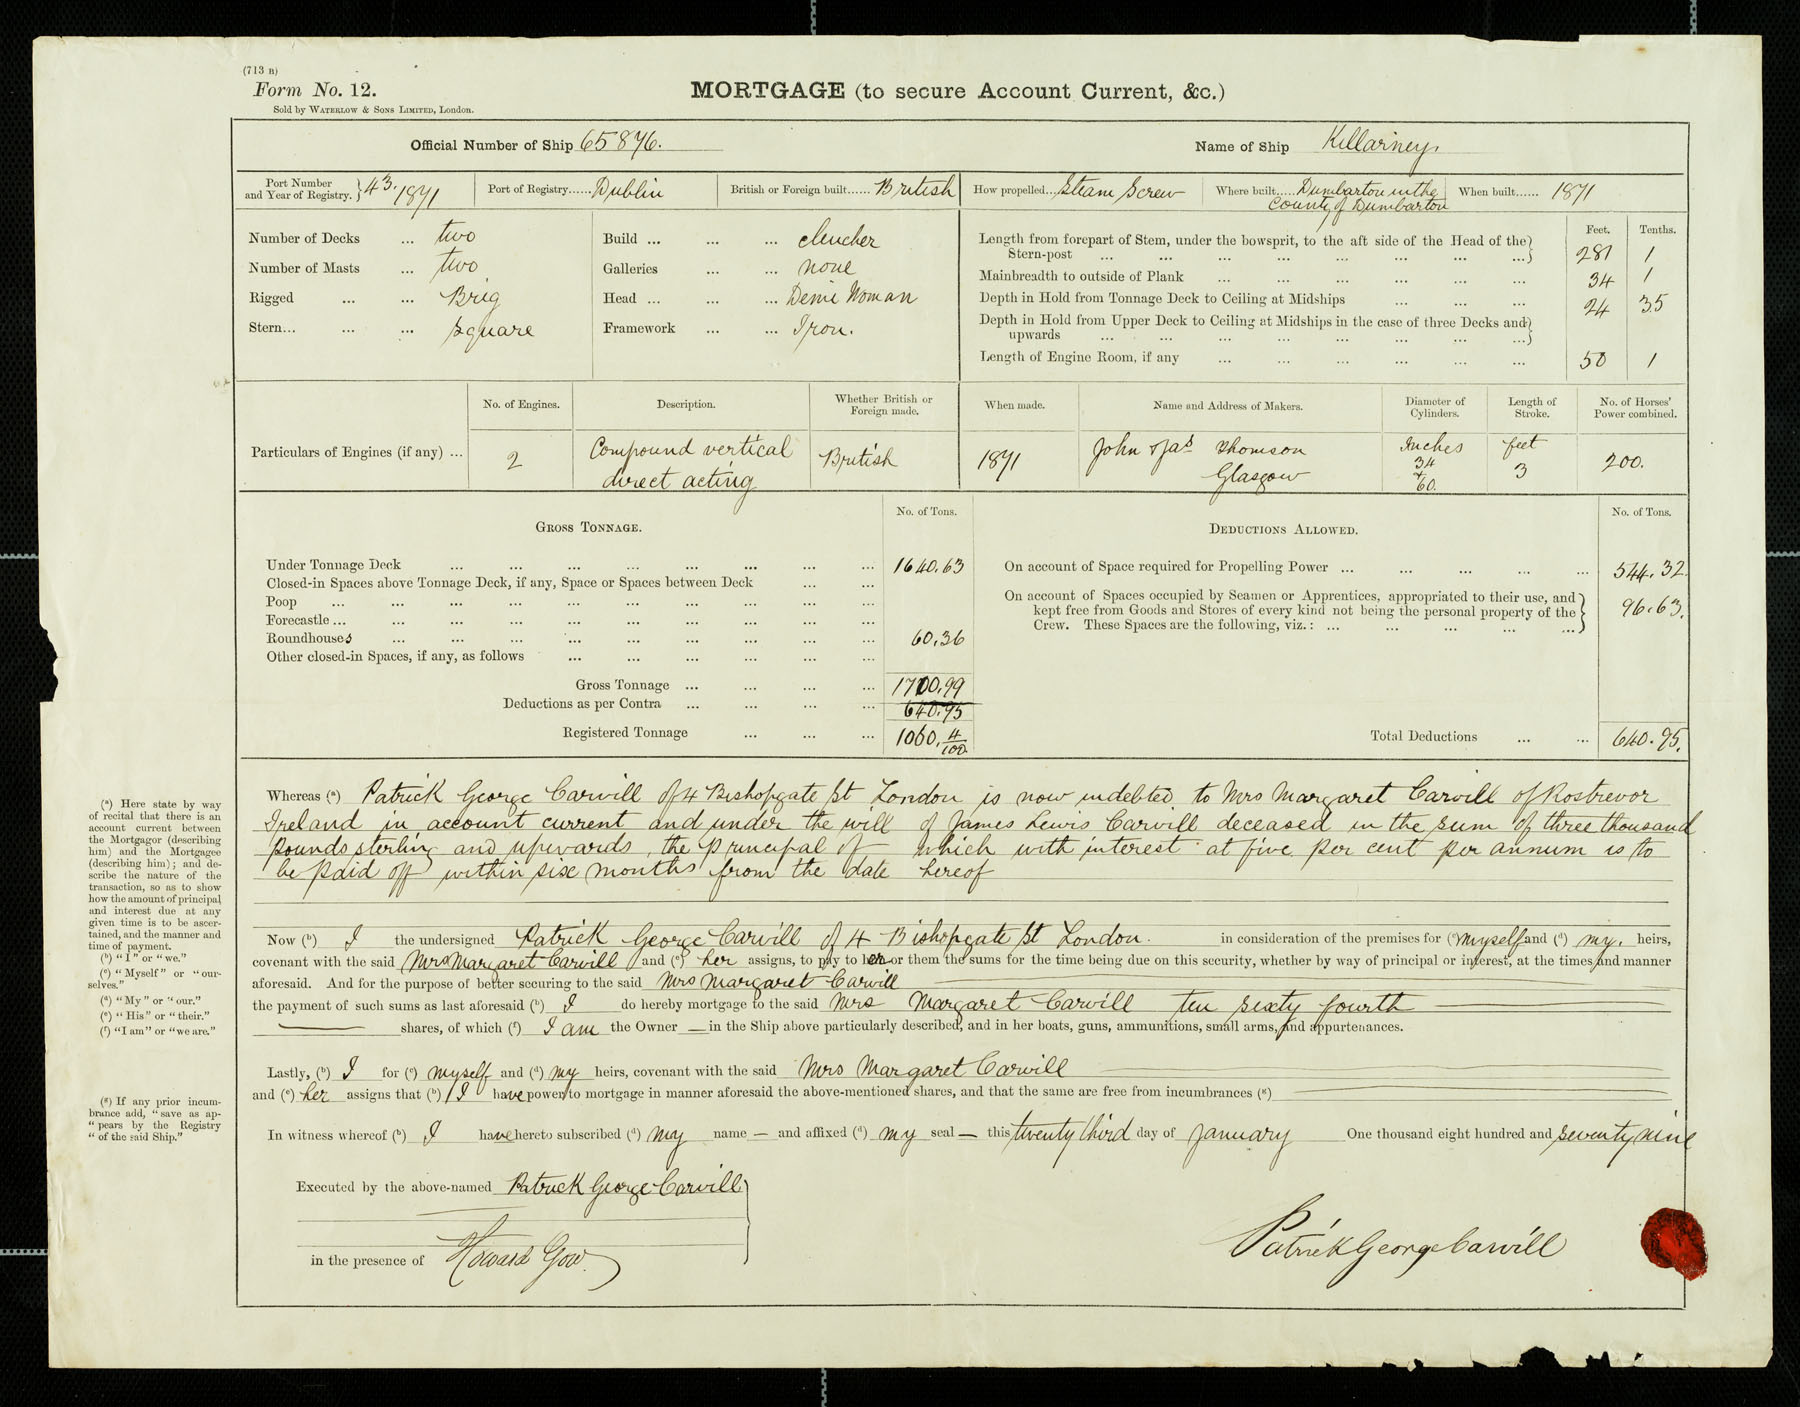 (713 B)
Form No. 12.
Sold by WATERLOW & SONS LIMITED, London.
MORTGAGE (to secure Account Current, &c.)
Official Number of Ship 65876.
Name of Ship Killarney.
Port Number and Year of Registry. } 43. 1871
Port of Registry...... Dublin
British or Foreign built...... British
How propelled... Steam Screw
Where built..... Dumbarton in the County of Dumbarton
When built...... 1871
Number of Decks ... two
Number of Masts ... two
Rigged ... ... Brig
Stern... ... ... Square
Build ... ... ... clencher
Galleries ... ... none
Head ... ... ... Demi Woman
Framework ... ... Iron.
Feet. Tenths.
Length from forepart of Stem, under the bowsprit, to the aft side of the Head of the
Stern-post ... ... ... ... ... ... ... ...} 281 1
Mainbreadth to outside of Plank ... ... ... ... ... ... 34 1
Depth in Hold from Tonnage Deck to Ceiling at Midships ... ... ... 24 35
Depth in Hold from Upper Deck to Ceiling at Midships in the case of three Decks and
upwards ... ... ... ... ... ... ... ...}
Length of Engine Room, if any ... ... ... ... ... ... 50 1
Particulars of Engines (if any) ...
No. of Engines.
2
Description.
Compound vertical
direct acting
Whether British or Foreign made.
British
When made.
1871
Name and Address of Makers.
John & Jas Thomson
Glasgow
Diameter of Cylinders.
Inches
34
+
60.
Length of Stroke.
feet
3
No. of Horses' Power combined.
200.
GROSS TONNAGE.
No. of Tons.
Under Tonnage Deck ... ... ... ... ... ... ... ... 1640.63
Closed-in Spaces above Tonnage Deck, if any, Space or Spaces between Deck ... ...
Poop ... ... ... ... ... ... ... ... ... ...
Forecastle ... ... ... ... ... ... ... ... ... ...
Roundhouses ... ... ... ... ... ... ... ... ... 60.36
Other closed-in Spaces, if any, as follows ... ... ... ... ... ...
Gross Tonnage ... ... ... ... 1700.99
Deductions as per Contra ... ... ... ... 640.95
Registered Tonnage ... ... ... 1060. 4/100
DEDUCTIONS ALLOWED.
No. of Tons.
On account of Space required for Propelling Power ... ... ... ... ... 544.32.
On account of Spaces occupied by Seamen or Apprentices, appropriated to their use, and
kept free from Goods and Stores of every kind not being the personal property of the } 96.63.
Crew. These Spaces are the following, viz.: ... ... ... ... ...
Total Deductions ... ... 640.95.
(a) Here state by way
of recital that there is an
account current between
the Mortgagor (describing
him) and the Mortgagee
(describing him); and de-
scribe the nature of the
transaction, so as to show
how the amount of principal
and interest due at any
given time is to be ascer-
tained, and the manner and
time of payment.
(b) "I" or "we."
(c) "Myself" or "our-
selves."
(d) "My" or "our."
(e) "His" or "their."
(f) "I am" or "we are."
(g) If any prior incum-
brance add, "save as ap-
"pears by the Registry
"of the said Ship."
Whereas (a) Patrick George Carvill of 4 Bishopgate St London is now indebted to Mrs Margaret Carvill of Rostrevor
Ireland in account current and under the will of James Lewis Carvill deceased in the sum of three thousand
pounds sterling and upwards, the principal of which with interest at five per cent per annum is to
be paid off within six months from the date hereof
Now (b) I the undersigned Patrick George Carvill of 4 Bishopgate St London. in consideration of the premises for (c) myself and (d) my heirs,
covenant with the said Mrs Margaret Carvill and (e) her assigns, to pay to her or them the sums for the time being due on this security, whether by way of principal or interest, at the times and manner
aforesaid. And for the purpose of better securing to the said Mrs Margaret Carvill
the payment of such sums as last aforesaid (b) I do hereby mortgage to the said Mrs Margaret Carvill ten sixty fourth
shares, of which (f) I am the Owner — in the Ship above particularly described, and in her boats, guns, ammunitions, small arms, and appurtenances.
Lastly, (b) I for (c) myself and (d) my heirs, covenant with the said Mrs Margaret Carvill
and (e) her assigns that (b) I have power to mortgage in manner aforesaid the above-mentioned shares, and that the same are free from incumbrances (g)
In witness whereof (b) I have hereto subscribed (d) my name — and affixed (d) my seal — this twenty third day of January One thousand eight hundred and seventy nine
Executed by the above-named Patrick George Carvill
in the presence of Howard Gow.
Patrick George Carvill